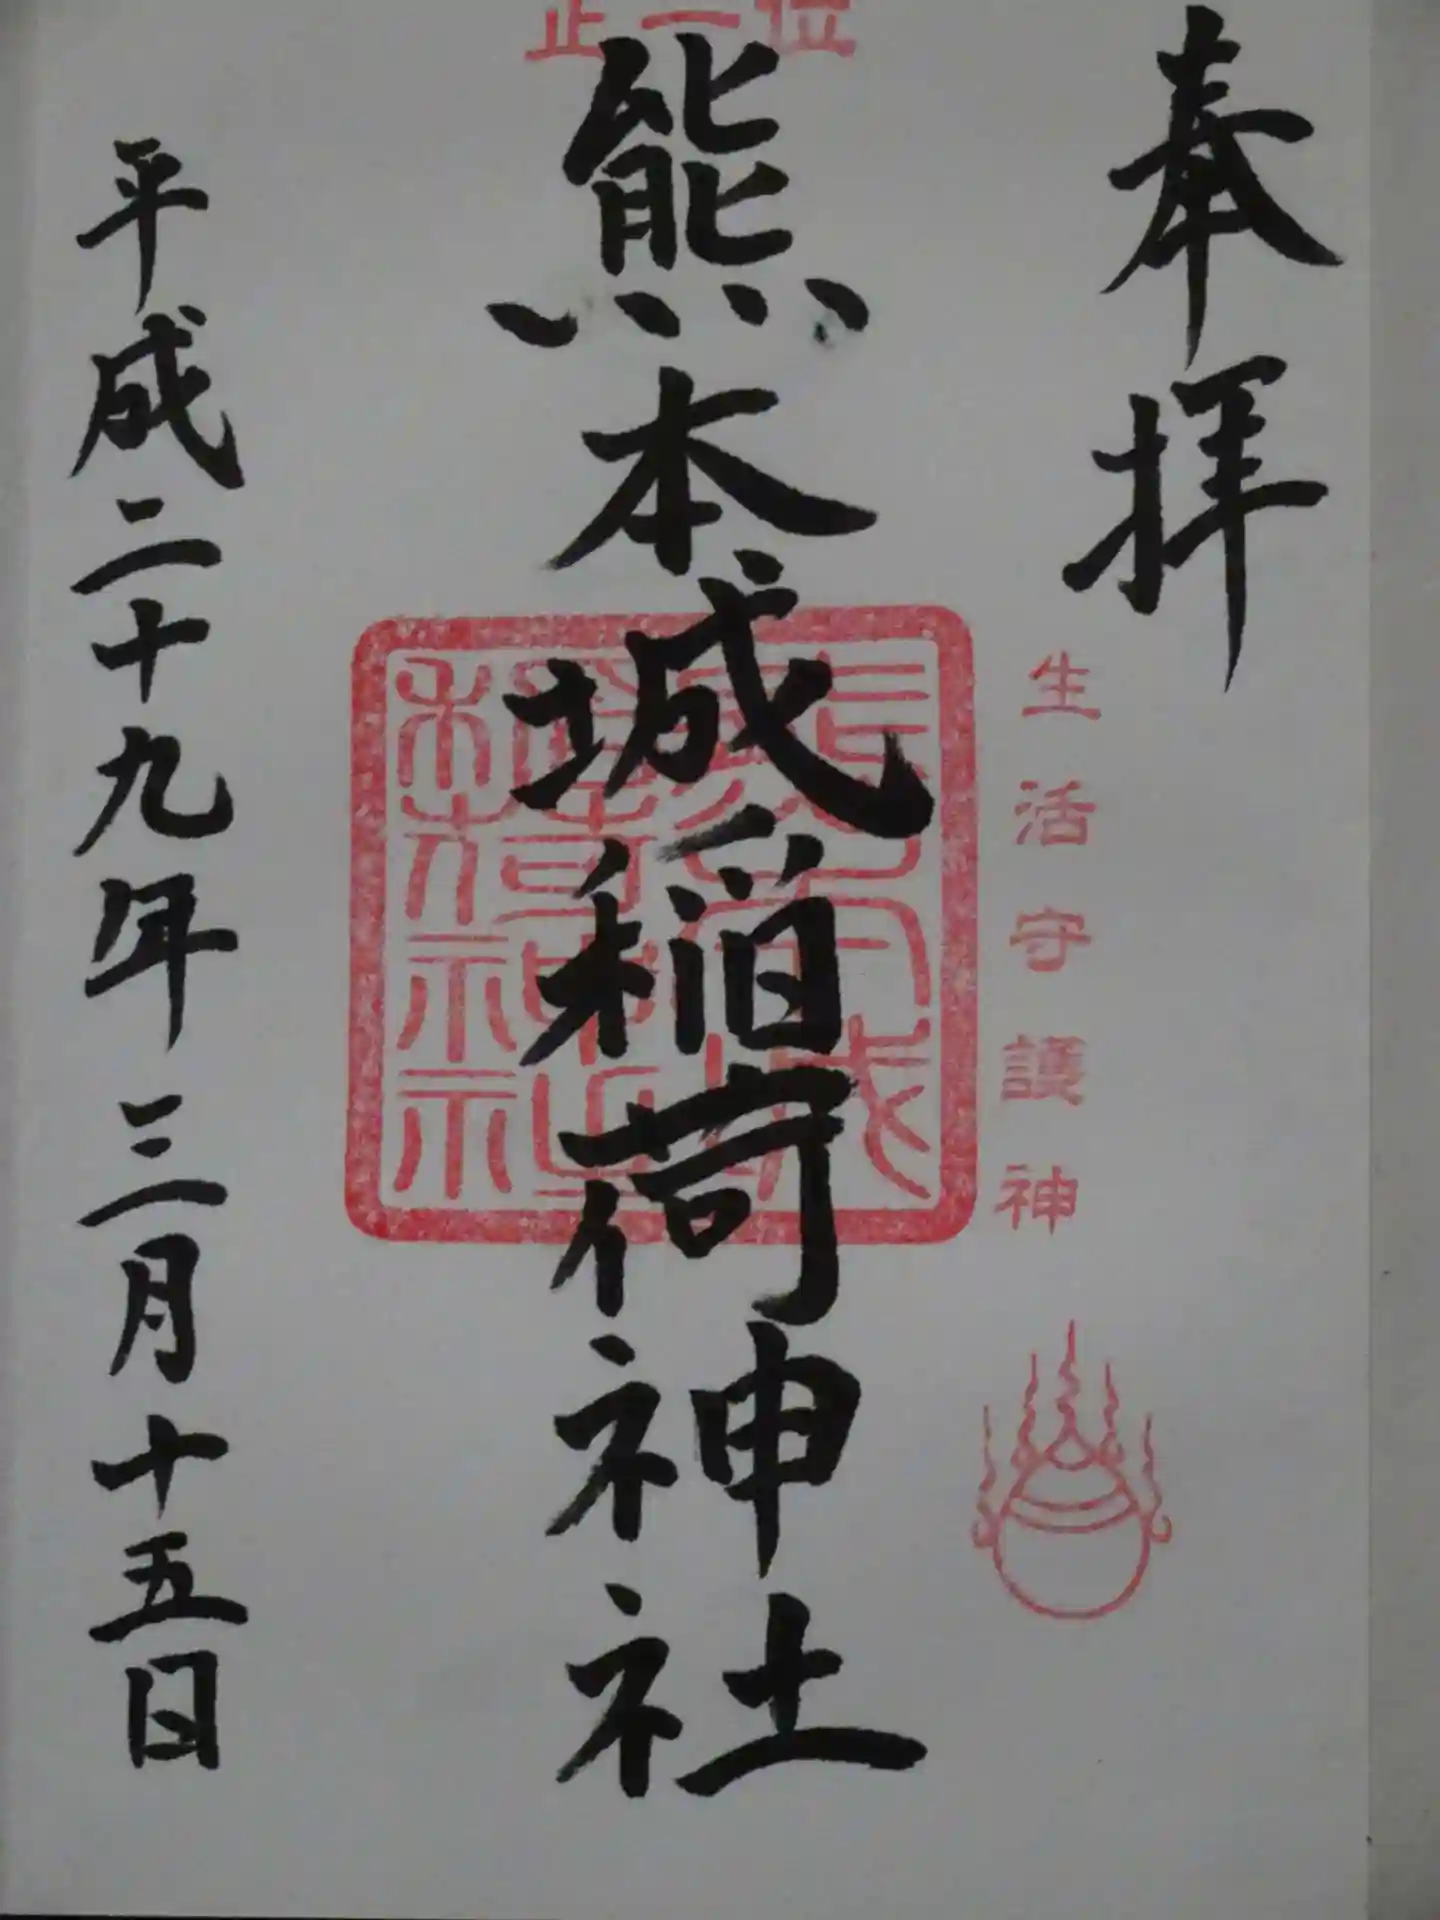 奉拝
生活守護神
正一位
熊本城稲荷神社
平成二十九年三月十五日